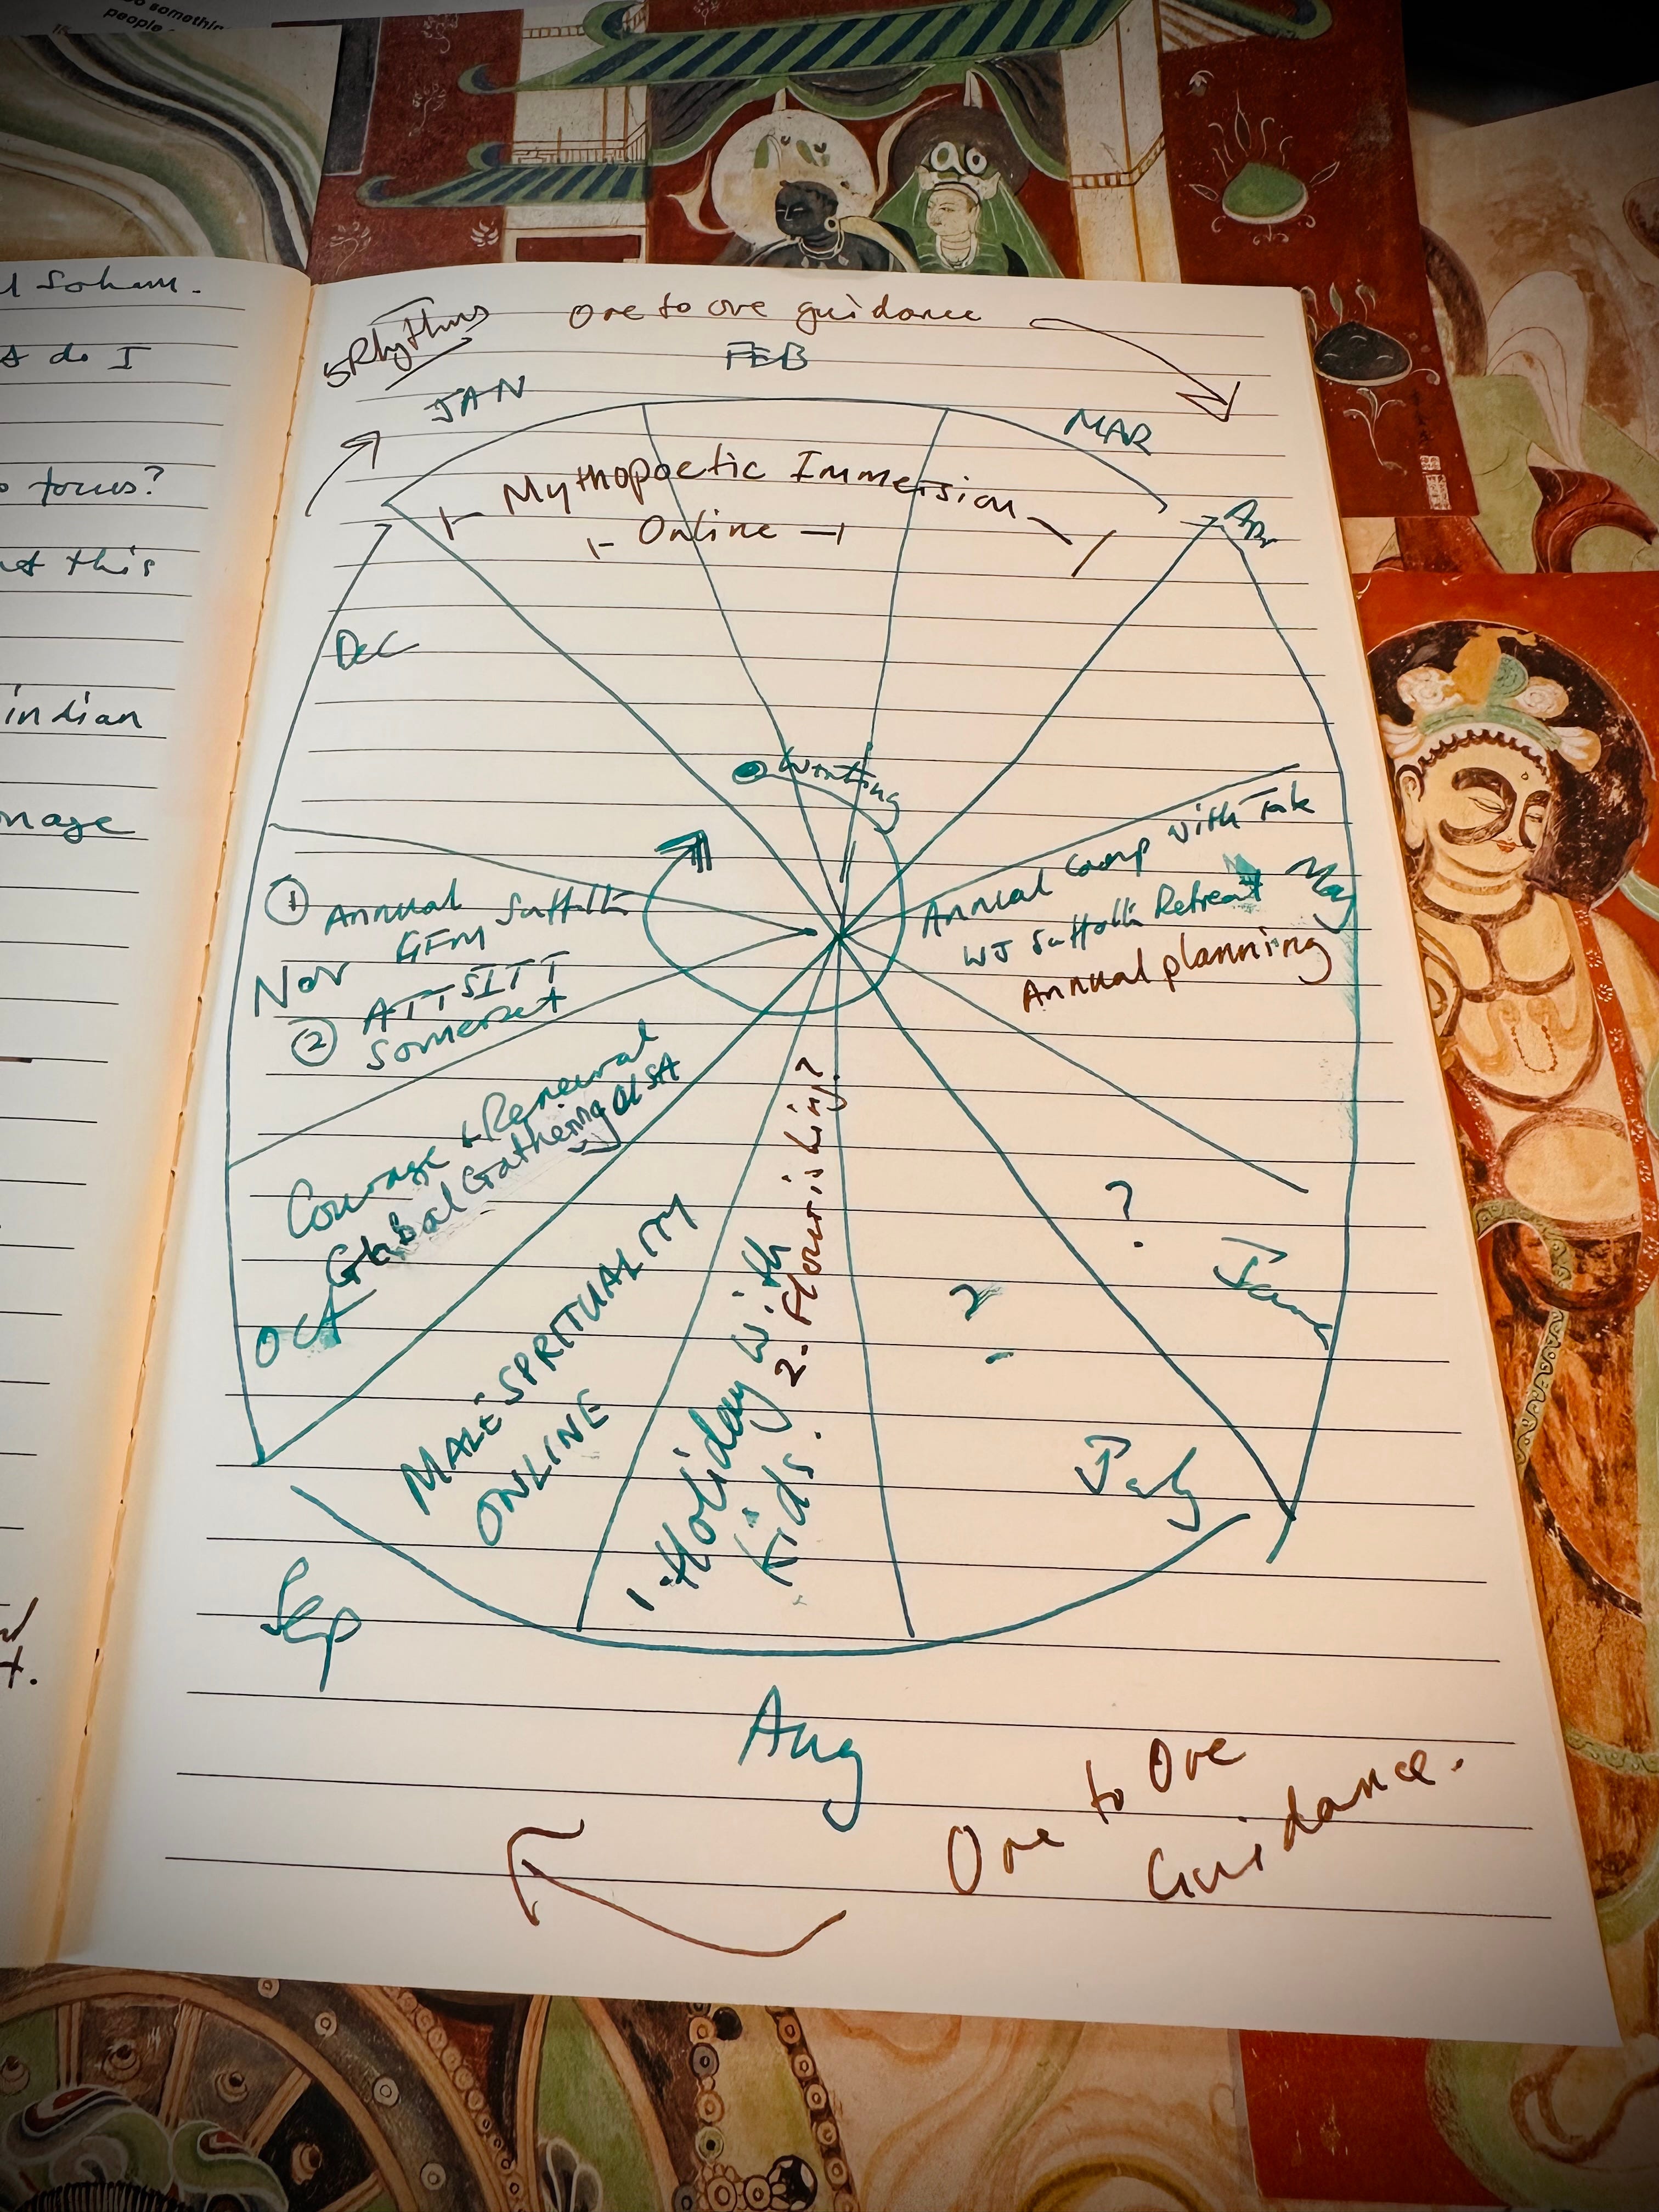 people
Soham.
do I
focus?
this
indian
5Rhythms
One to one guidance
FEB
JAN
MAR
Mythopoetic Immersion
Online
Apr
DEC
Writing
Annual Camp with Tok
WJ Suffolk Retreat
Annual planning
May
① Annual
GFM Suffolk
Nov
② ATT SITT
Somerset
Courage & Renewal
Global Gathering USA
Oct
?
June
MALE SPRITUALITY
ONLINE
1. Holiday with
kids.
2. Flourishing?
?
July
Sep
Aug
One to One
Guidance.